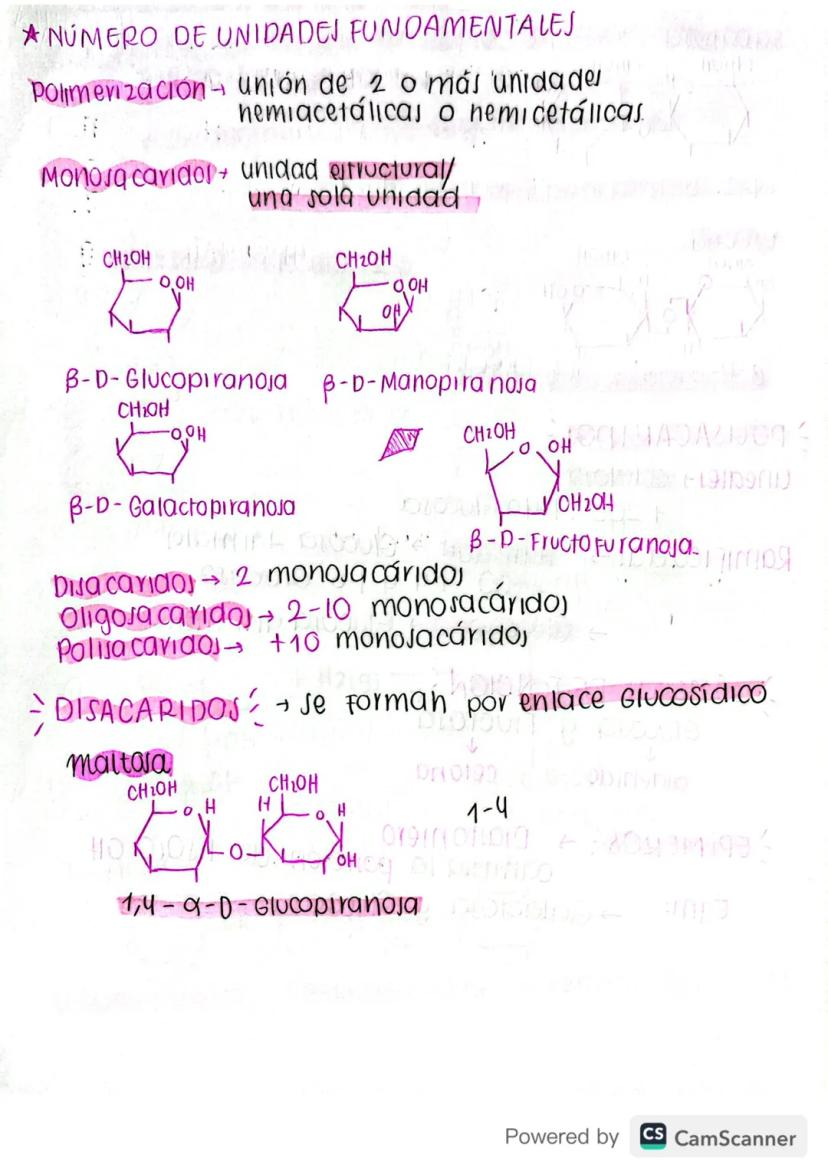 ★ NÚMERO DE UNIDADES FUNDAMENTALES
Polimerización → unión de 2 o más unidades
hemiacetálicas o hemicetálicas.
Monosacaridos → unidad estructural/
una sola unidad
CH2OH
O OH
CH2OH
O OH
OH
β-D-Glucopiranosa
β-D-Manopiranosa
CH2OH
O OH
β-D-Galactopiranosa
CH2OH
O OH
OH2OH
β-D-Fructofuranosa.
Disacaridos → 2 monosacáridos
Oligosacaridos → 2-10 monosacáridos
Polisacaridos → +10 monosacáridos
DISACARIDOS → se forman por enlace Glucosídico
maltosa
CH2OH
O H
O
CH2OH
H O H
OH
1-4
1,4-α-D-Glucopiranosa
Powered by CS CamScanner